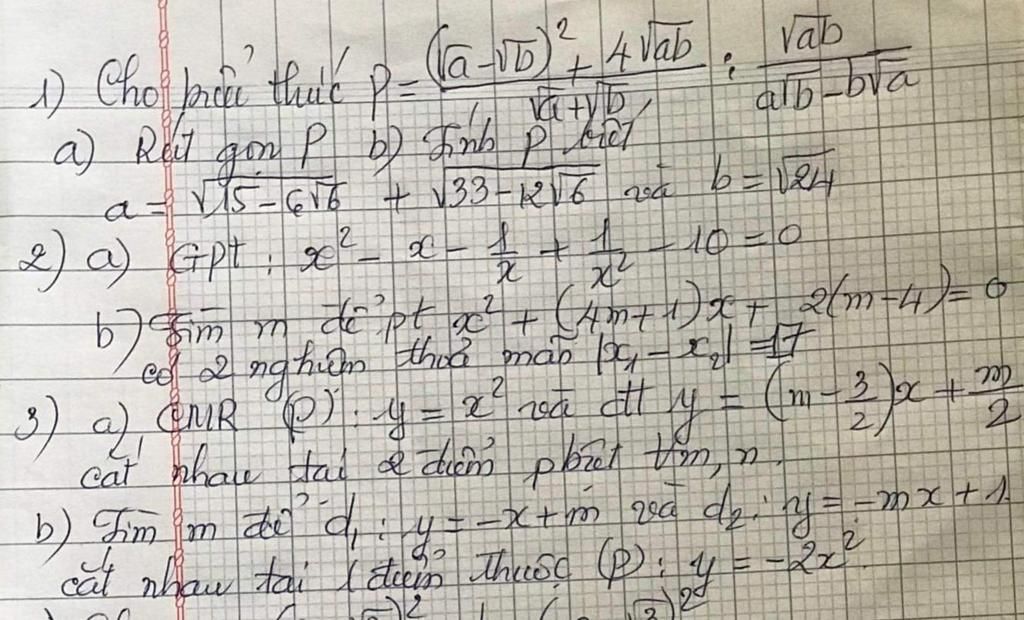 1) Cho biểu thức P = ((√a - √b)² + 4√ab)/(√a + √b) : √ab/(a√b - b√a)
a) Rút gọn P b) Tính P biết
a = √(15 - 6√6) + √(33 - 12√6) và b = √24
2) a) Gpt : x² - x - 1/x + 1/x² - 10 = 0
b) Tìm m để pt x² + (4m+1)x + 2(m-4) = 0
có 2 nghiệm thoả mãn |x₁ - x₂| = 17
3) a) CMR (P) : y = x² và đt y = (m - 3/2)x + m/2
cắt nhau tại 2 điểm pbiệt
b) Tìm m để d₁ : y = -x + m và d₂ : y = -mx + 1
cắt nhau tại 1 điểm thuộc (P) : y = -2x².